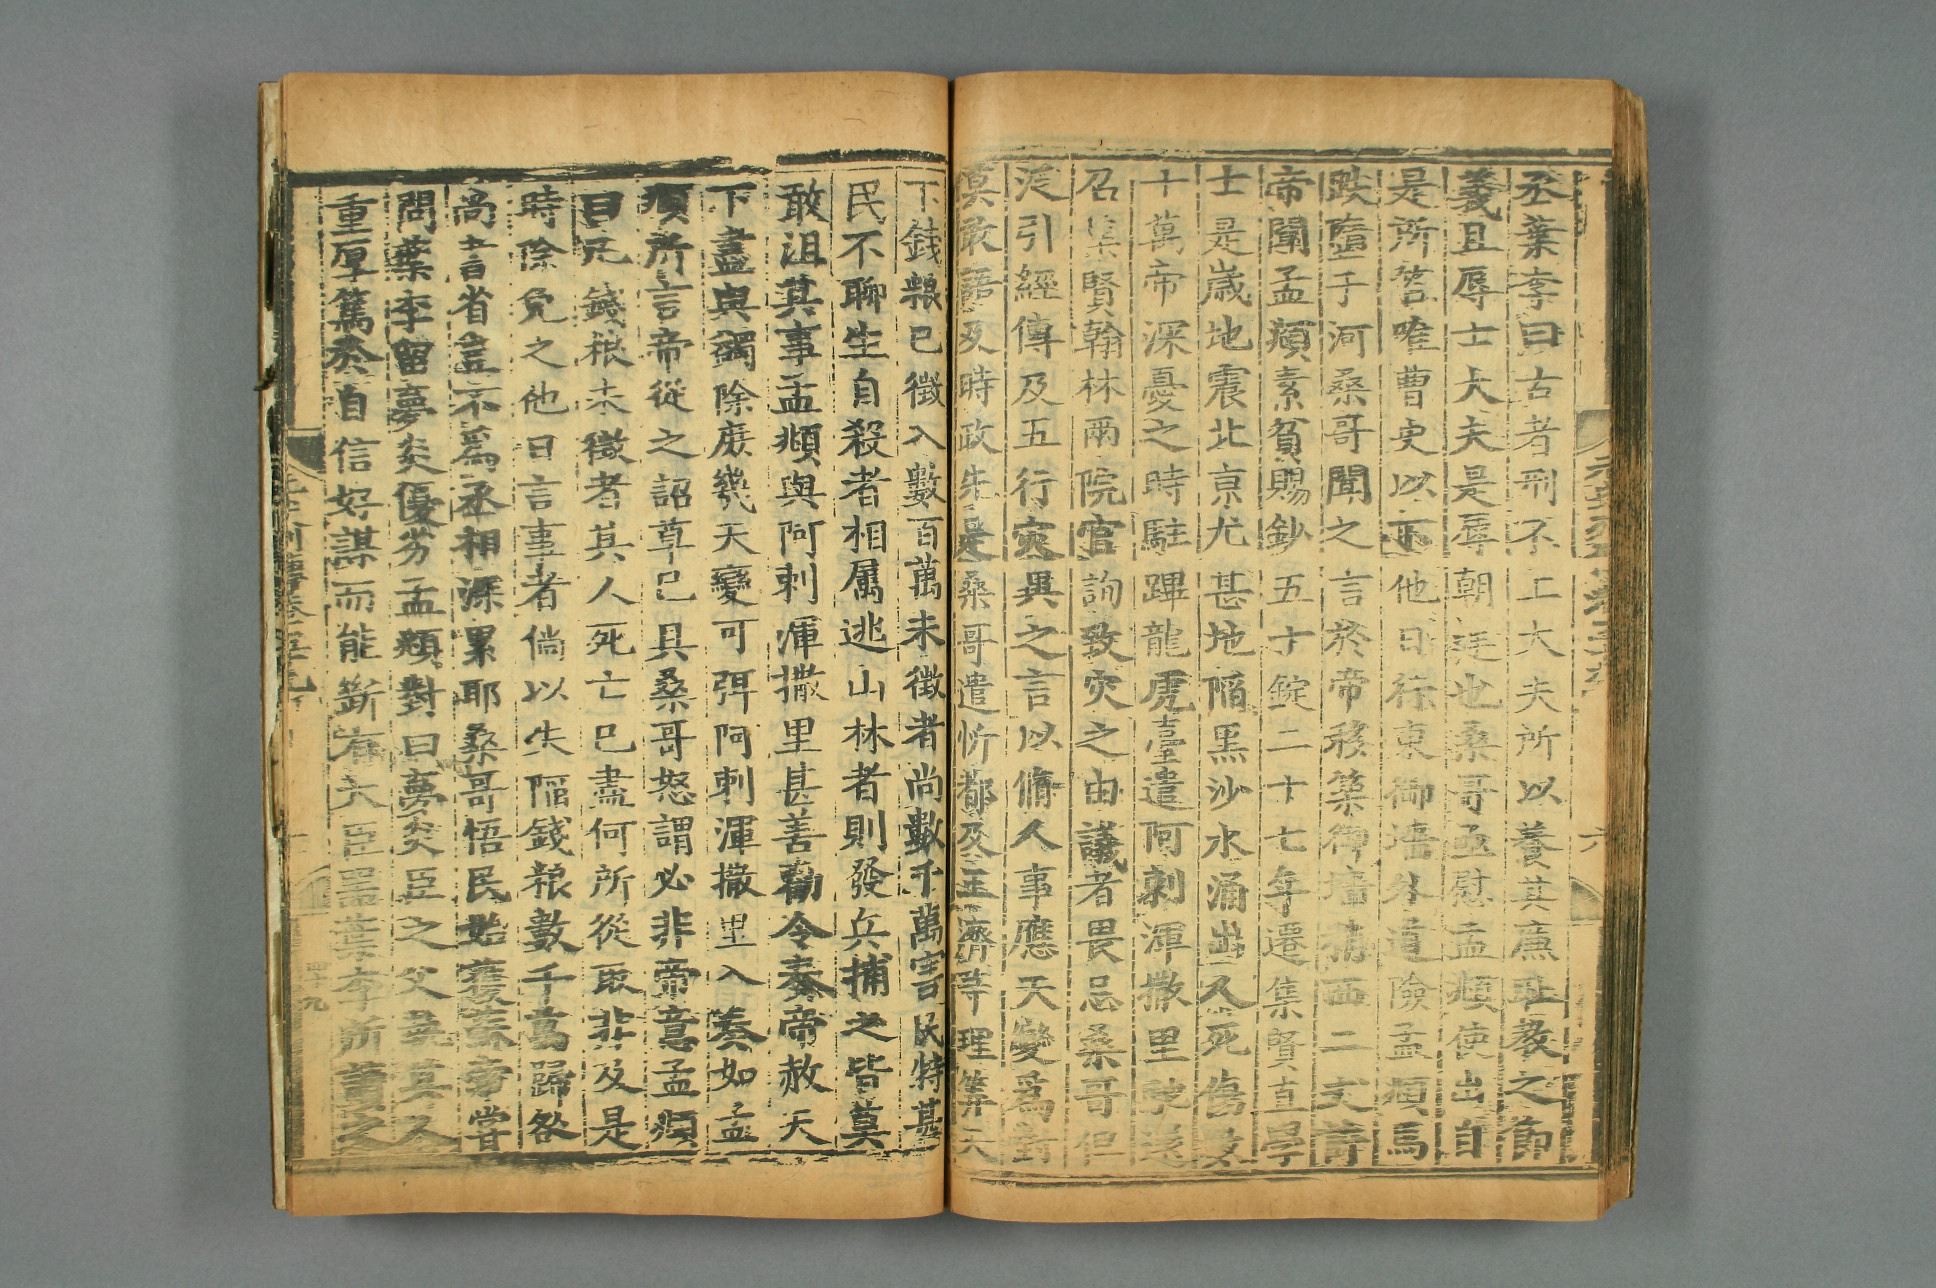 丞葉李曰古者刑不上大夫所以養其廉恥教之節
義且辱士大夫是辱朝廷也桑哥亟慰孟頫使出自
是所笞唯曹史以下他日行東御墻外道險孟頫馬
跌墮于河桑哥聞之言於帝移築御墻稍西二丈許
帝聞孟頫素貧賜鈔五十錠二十七年遷集賢直學
士是歲地震北京尤甚地陷黑沙水涌出人死傷數
十萬帝深憂之時駐蹕龍虎臺遣阿剌渾撒里馳還
召集賢翰林兩院官詢致災之由議者畏忌桑哥但
泛引經傳及五行災異之言以脩人事應天變爲對
莫敢語及時政先是桑哥遣忻都及王濟等理筭天
下錢粮已徵入數百萬未徵者尚數千萬害民特甚
民不聊生自殺者相屬逃山林者則發兵捕之皆莫
敢沮其事孟頫與阿剌渾撒里甚善勸令奏帝赦天
下盡與蠲除庶幾天變可弭阿剌渾撒里入奏如孟
頫所言帝從之詔草已具桑哥怒謂必非帝意孟頫
曰凡錢粮未徵者其人死亡已盡何所從取非及是
時除免之他日言事者倘以失陷錢粮數千萬歸咎
尚書省豈不爲丞相深累耶桑哥悟民始獲蘇帝嘗
問葉李留夢炎優劣孟頫對曰夢炎臣之父執其人
重厚篤於自信好謀而能斷有大臣器葉李所讀之